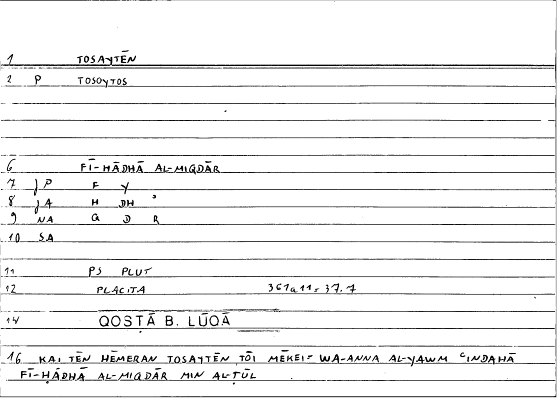 1 TOSAYTĒN
2 P TOSOYTOS
6 FĪ-HĀDHĀ AL-MIQDĀR
7 JP F Y
8 JA H DH ᵓ
9 NA Q D R
10 SA
11 PS PLUT
12 PLACITA 361a11 = 37.7
14 QOSṬĀ B. LŪQĀ
16 KAI TĒN HĒMERAN TOSAYTĒN TŌI MĒKEI = WA-ANNA AL-YAWM ᶜINDAHĀ
FĪ-HĀDHĀ AL-MIQDĀR MIN AL-ṬŪL